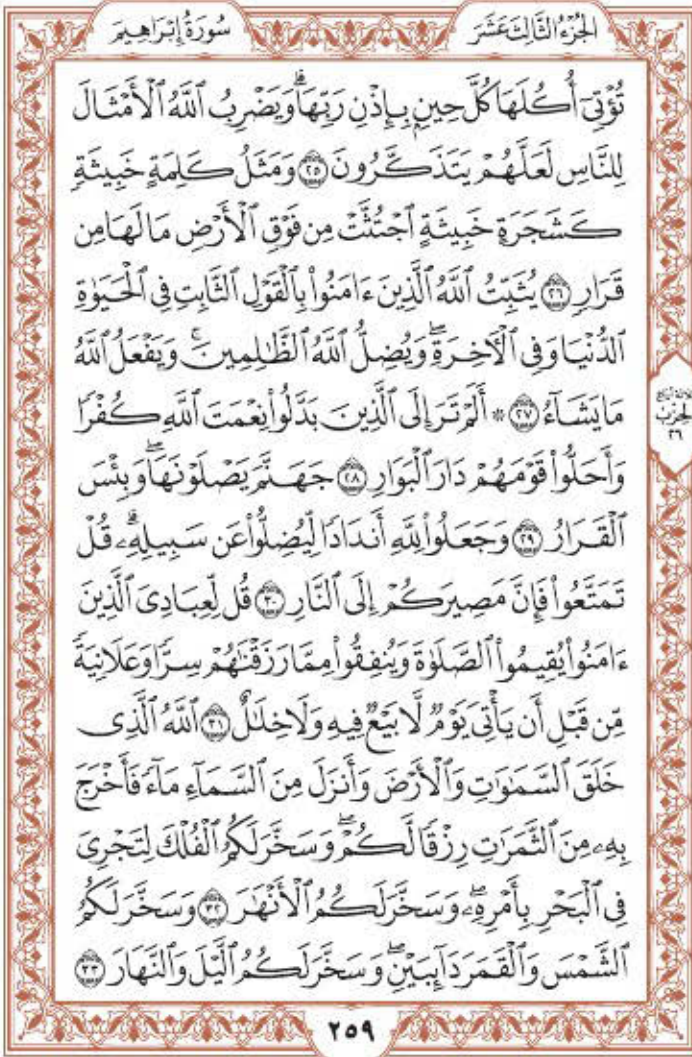 الجُزْءُ الثَّالِثَ عَشَرَ
سُورَةُ إِبْرَاهِيمَ
تُؤْتِىٓ أُكُلَهَا كُلَّ حِينٍۭ بِإِذْنِ رَبِّهَاۗ وَيَضْرِبُ ٱللَّهُ ٱلْأَمْثَالَ
لِلنَّاسِ لَعَلَّهُمْ يَتَذَكَّرُونَ ٢٥ وَمَثَلُ كَلِمَةٍ خَبِيثَةٍ
كَشَجَرَةٍ خَبِيثَةٍ ٱجْتُثَّتْ مِن فَوْقِ ٱلْأَرْضِ مَا لَهَا مِن
قَرَارٍ ٢٦ يُثَبِّتُ ٱللَّهُ ٱلَّذِينَ ءَامَنُوا۟ بِٱلْقَوْلِ ٱلثَّابِتِ فِى ٱلْحَيَوٰةِ
ٱلدُّنْيَا وَفِى ٱلْءَاخِرَةِۖ وَيُضِلُّ ٱللَّهُ ٱلظَّـٰلِمِينَۚ وَيَفْعَلُ ٱللَّهُ
مَا يَشَآءُ ٢٧ ۞ أَلَمْ تَرَ إِلَى ٱلَّذِينَ بَدَّلُوا۟ نِعْمَتَ ٱللَّهِ كُفْرًا
وَأَحَلُّوا۟ قَوْمَهُمْ دَارَ ٱلْبَوَارِ ٢٨ جَهَنَّمَ يَصْلَوْنَهَاۖ وَبِئْسَ
ٱلْقَرَارُ ٢٩ وَجَعَلُوا۟ لِلَّهِ أَندَادًا لِّيُضِلُّوا۟ عَن سَبِيلِهِۦۗ قُلْ
تَمَتَّعُوا۟ فَإِنَّ مَصِيرَكُمْ إِلَى ٱلنَّارِ ٣٠ قُل لِّعِبَادِىَ ٱلَّذِينَ
ءَامَنُوا۟ يُقِيمُوا۟ ٱلصَّلَوٰةَ وَيُنفِقُوا۟ مِمَّا رَزَقْنَـٰهُمْ سِرًّا وَعَلَانِيَةً
مِّن قَبْلِ أَن يَأْتِىَ يَوْمٌ لَّا بَيْعٌ فِيهِ وَلَا خِلَـٰلٌ ٣١ ٱللَّهُ ٱلَّذِى
خَلَقَ ٱلسَّمَـٰوَٰتِ وَٱلْأَرْضَ وَأَنزَلَ مِنَ ٱلسَّمَآءِ مَآءً فَأَخْرَجَ
بِهِۦ مِنَ ٱلثَّمَرَٰتِ رِزْقًا لَّكُمْۖ وَسَخَّرَ لَكُمُ ٱلْفُلْكَ لِتَجْرِىَ
فِى ٱلْبَحْرِ بِأَمْرِهِۦۖ وَسَخَّرَ لَكُمُ ٱلْأَنْهَـٰرَ ٣٢ وَسَخَّرَ لَكُمُ
ٱلشَّمْسَ وَٱلْقَمَرَ دَآئِبَيْنِۖ وَسَخَّرَ لَكُمُ ٱلَّيْلَ وَٱلنَّهَارَ ٣٣
الحِزْبُ
٢٦
٢٥٩